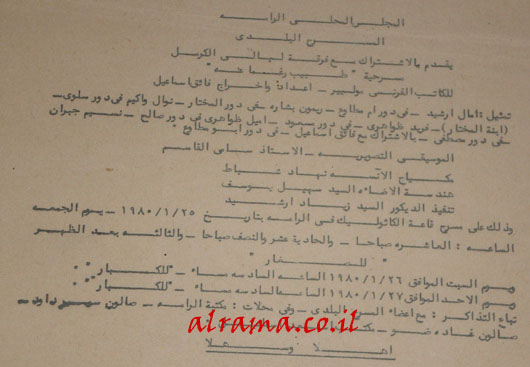 المجلس المحلي الرامه
المسرح البلدي
يقدم بالاشتراك مع فرقة ليالي الكرمل
مسرحية "طبيب رغما عنه"
للكاتب الفرنسي مولیير – اعداد واخراج فائق اسماعيل
تمثيل: امال ارشيد – في دور ام مطاوع – ريمون بشاره – في دور المختار – نوال واكيم في دور سلوى –
(ابنة المختار) – فريد ظواهري – في دور سعود – اميل ظواهري في دور صالح – نسيم جبران
في دور مصطفى – بالاشتراك مع فائق اسماعيل – في دور ابو مطاوع"
الموسيقى التصويريه – الاستاذ سامي القاسم
مكياج الانسه نهاد شباط
هندسة الاضاءه السيد سهيل يوسف
تنفيذ الديكور السيد زياد ارشيد
وذلك على مسرح قاعة الكاثوليك في الرامه بتاريخ ١٩٨٠/١/٢٥ – يوم الجمعه
الساعه: العاشره صباحا – والحادية عشر والنصف صباحا – والثالثه بعد الظهر
"للصغار"
ويوم السبت الموافق ١٩٨٠/١/٢٦ الساعه السادسه مساء – "للكبار"
ويوم الاحد الموافق ١٩٨٠/١/٢٧ الساعه السادسه مساء – "للكبار"
تباع التذاكر: مع اعضاء المسرح البلدي – وفي محلات: مكتبة الرامه – صالون سمير داود –
صالون غاده خو – مكتبة
alrama.co.il
اهلا وسهلا